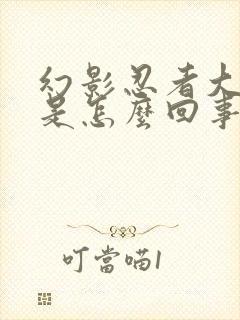 幻影忍者大
是怎麼回事
叮當喵1